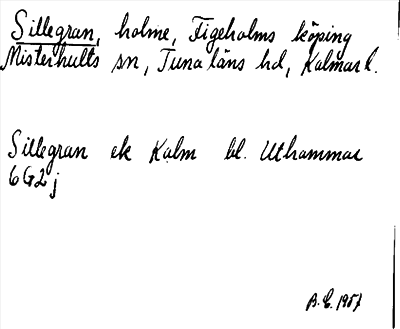 Sillegran, holme, Figeholms köping
Misterhults sn, Tunaläns hd, Kalmar l.
Sillegran ek Kalm bl. Uthammar
6G2j
1957